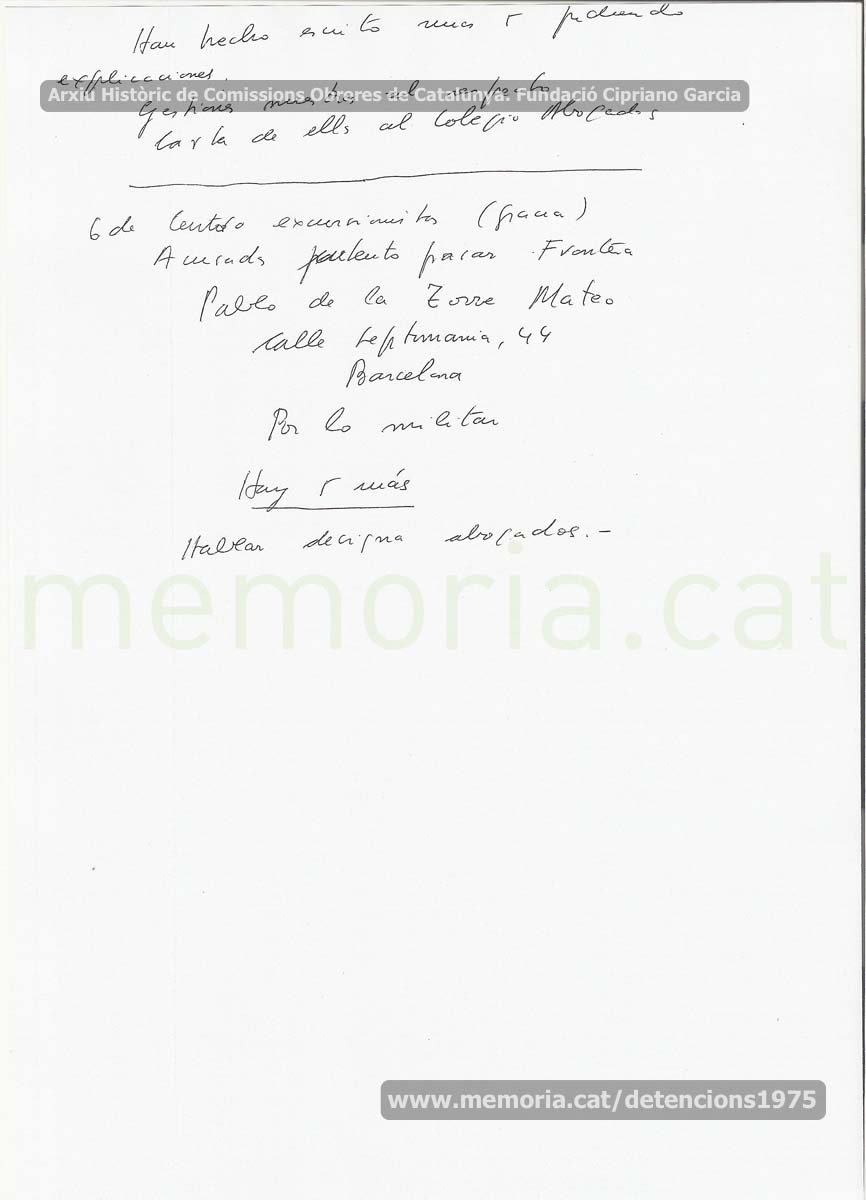 Han hecho escrito unos 5 pidiendo
explicaciones.
Arxiu Històric de Comissions Obreres de Catalunya. Fundació Cipriano Garcia
Gestiones nuestras al respecto
Carta de ells al Colegio Abogados
6 de Centro excursionista (gracia)
Acusado intento pasar Frontera
Pablo de la Torre Mateo
calle Septimania, 44
Barcelona
Por lo militar
Hay 5 más
Hablar designa abogados.-
memoria.cat
www.memoria.cat/detencions1975